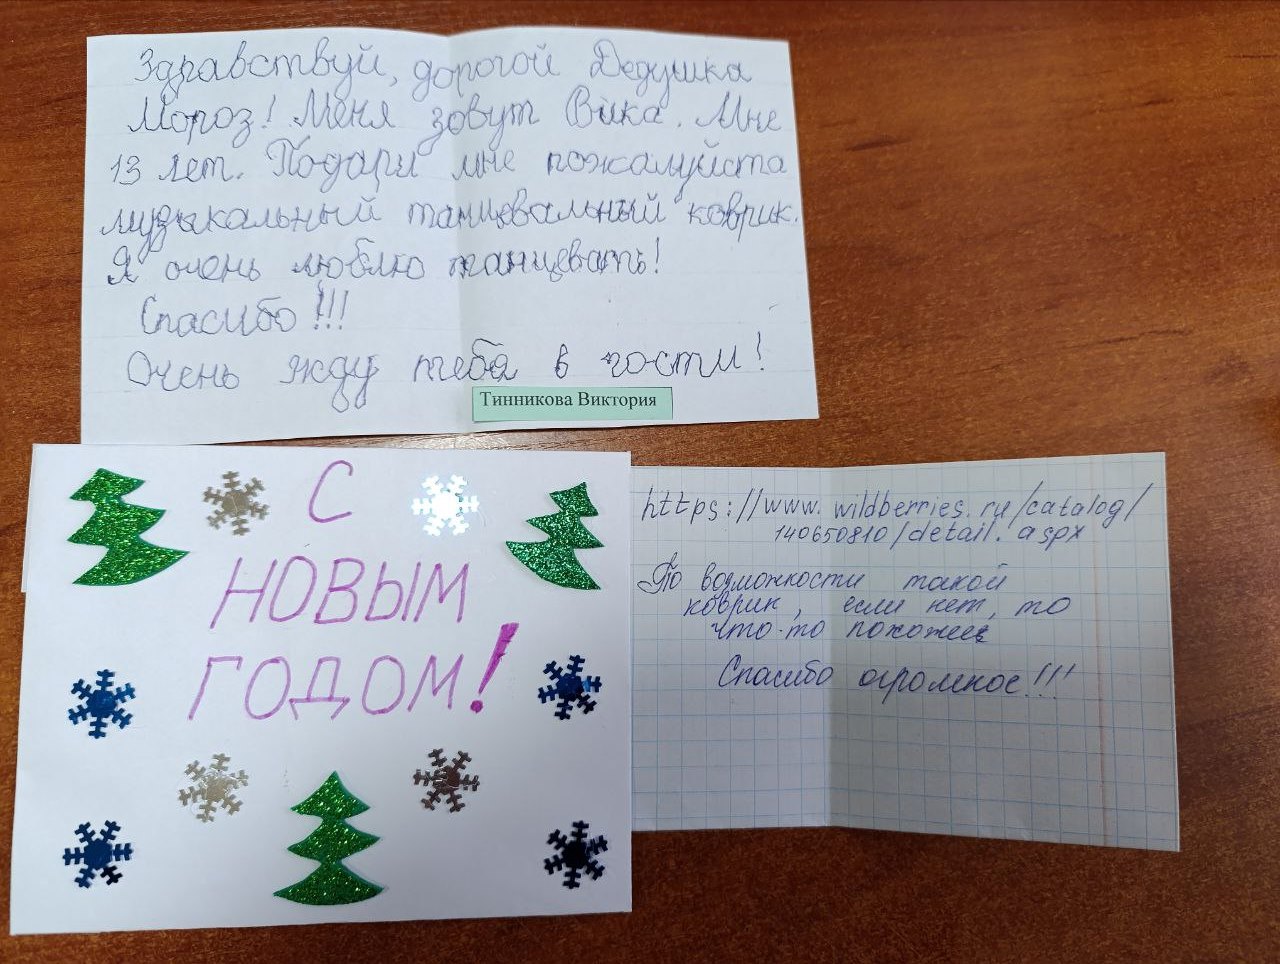 Здравствуй, дорогой Дедушка
Мороз! Меня зовут Вика. Мне
13 лет. Подари мне пожалуйста
музыкальный танцевальный коврик.
Я очень люблю танцевать!
Спасибо!!!
Очень жду тебя в гости!
Тинникова Виктория
С
НОВЫМ
ГОДОМ!
https://www.wildberries.ru/catalog/
140650810/detail.aspx
По возможности такой
коврик, если нет, то
что-то похожее
Спасибо огромное!!!